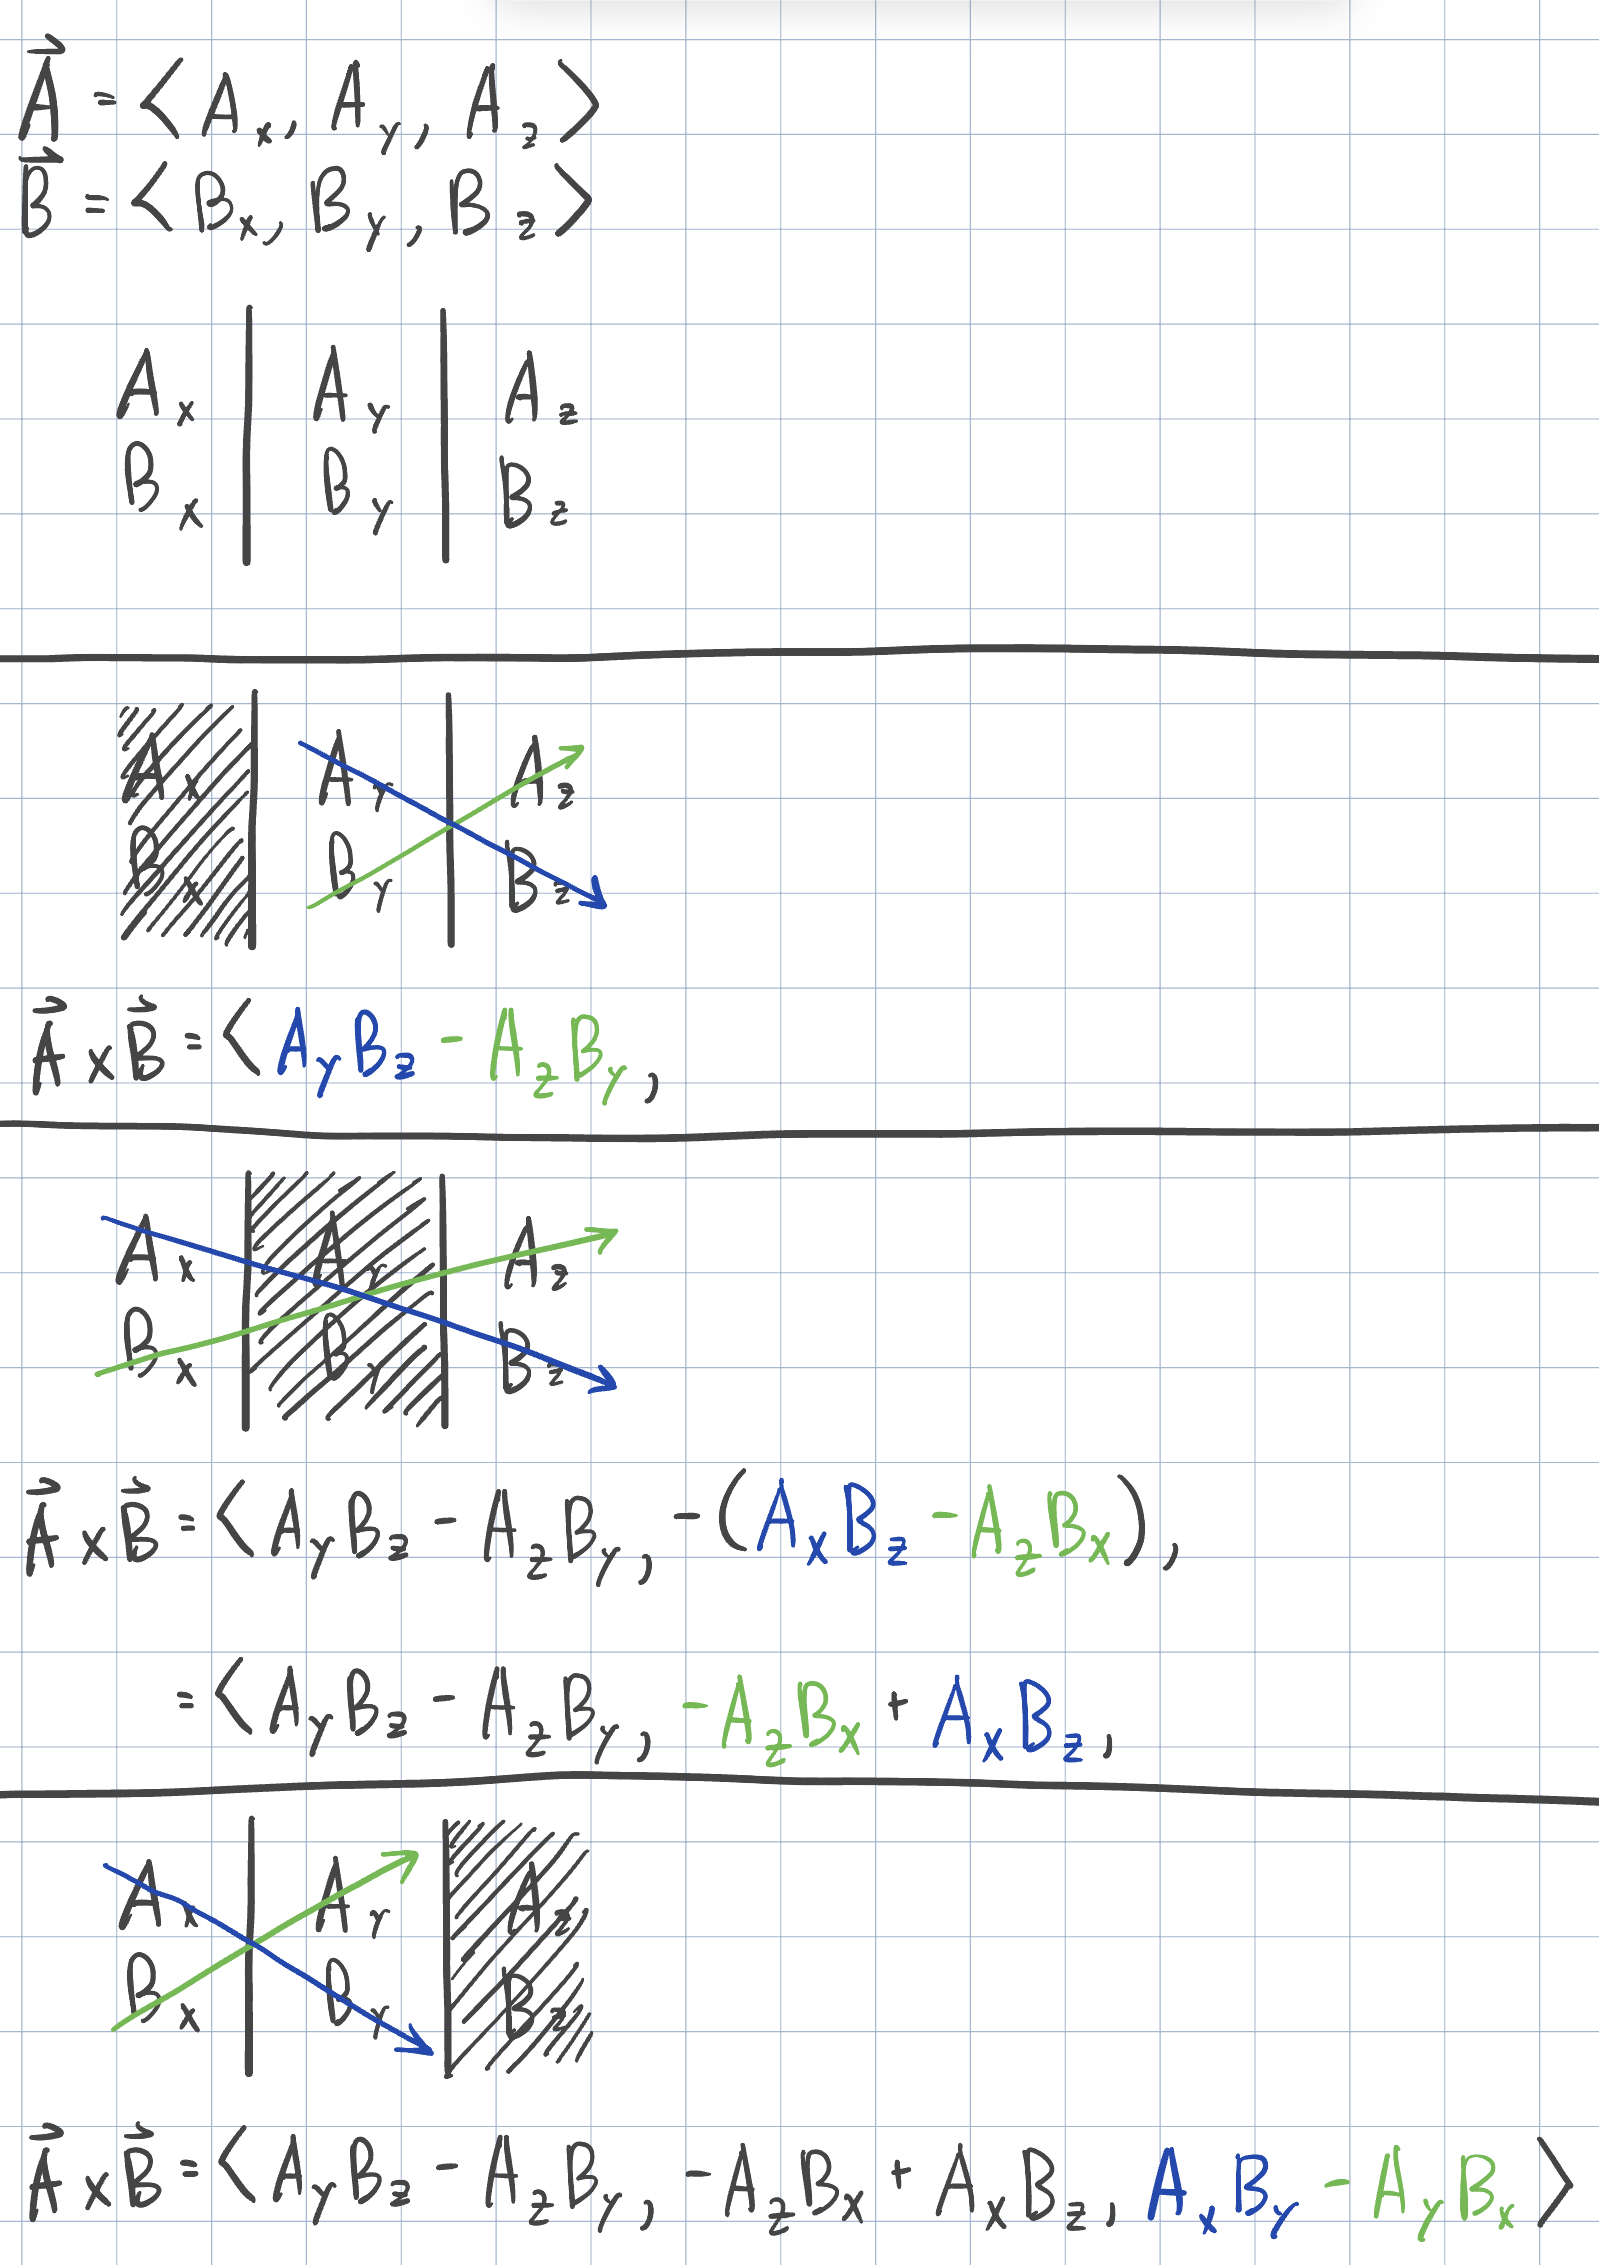 A⃗ = < A_x, A_y, A_z >
B⃗ = < B_x, B_y, B_z >
A_x | A_y | A_z
B_x | B_y | B_z
A_x | A_y | A_z
B_x | B_y | B_z
A⃗ × B⃗ = < A_y B_z - A_z B_y,
A_x | A_y | A_z
B_x | B_y | B_z
A⃗ × B⃗ = < A_y B_z - A_z B_y, -(A_x B_z - A_z B_x),
= < A_y B_z - A_z B_y, -A_z B_x + A_x B_z,
A_x | A_y | A_z
B_x | B_y | B_z
A⃗ × B⃗ = < A_y B_z - A_z B_y, -A_z B_x + A_x B_z, A_x B_y - A_y B_x >